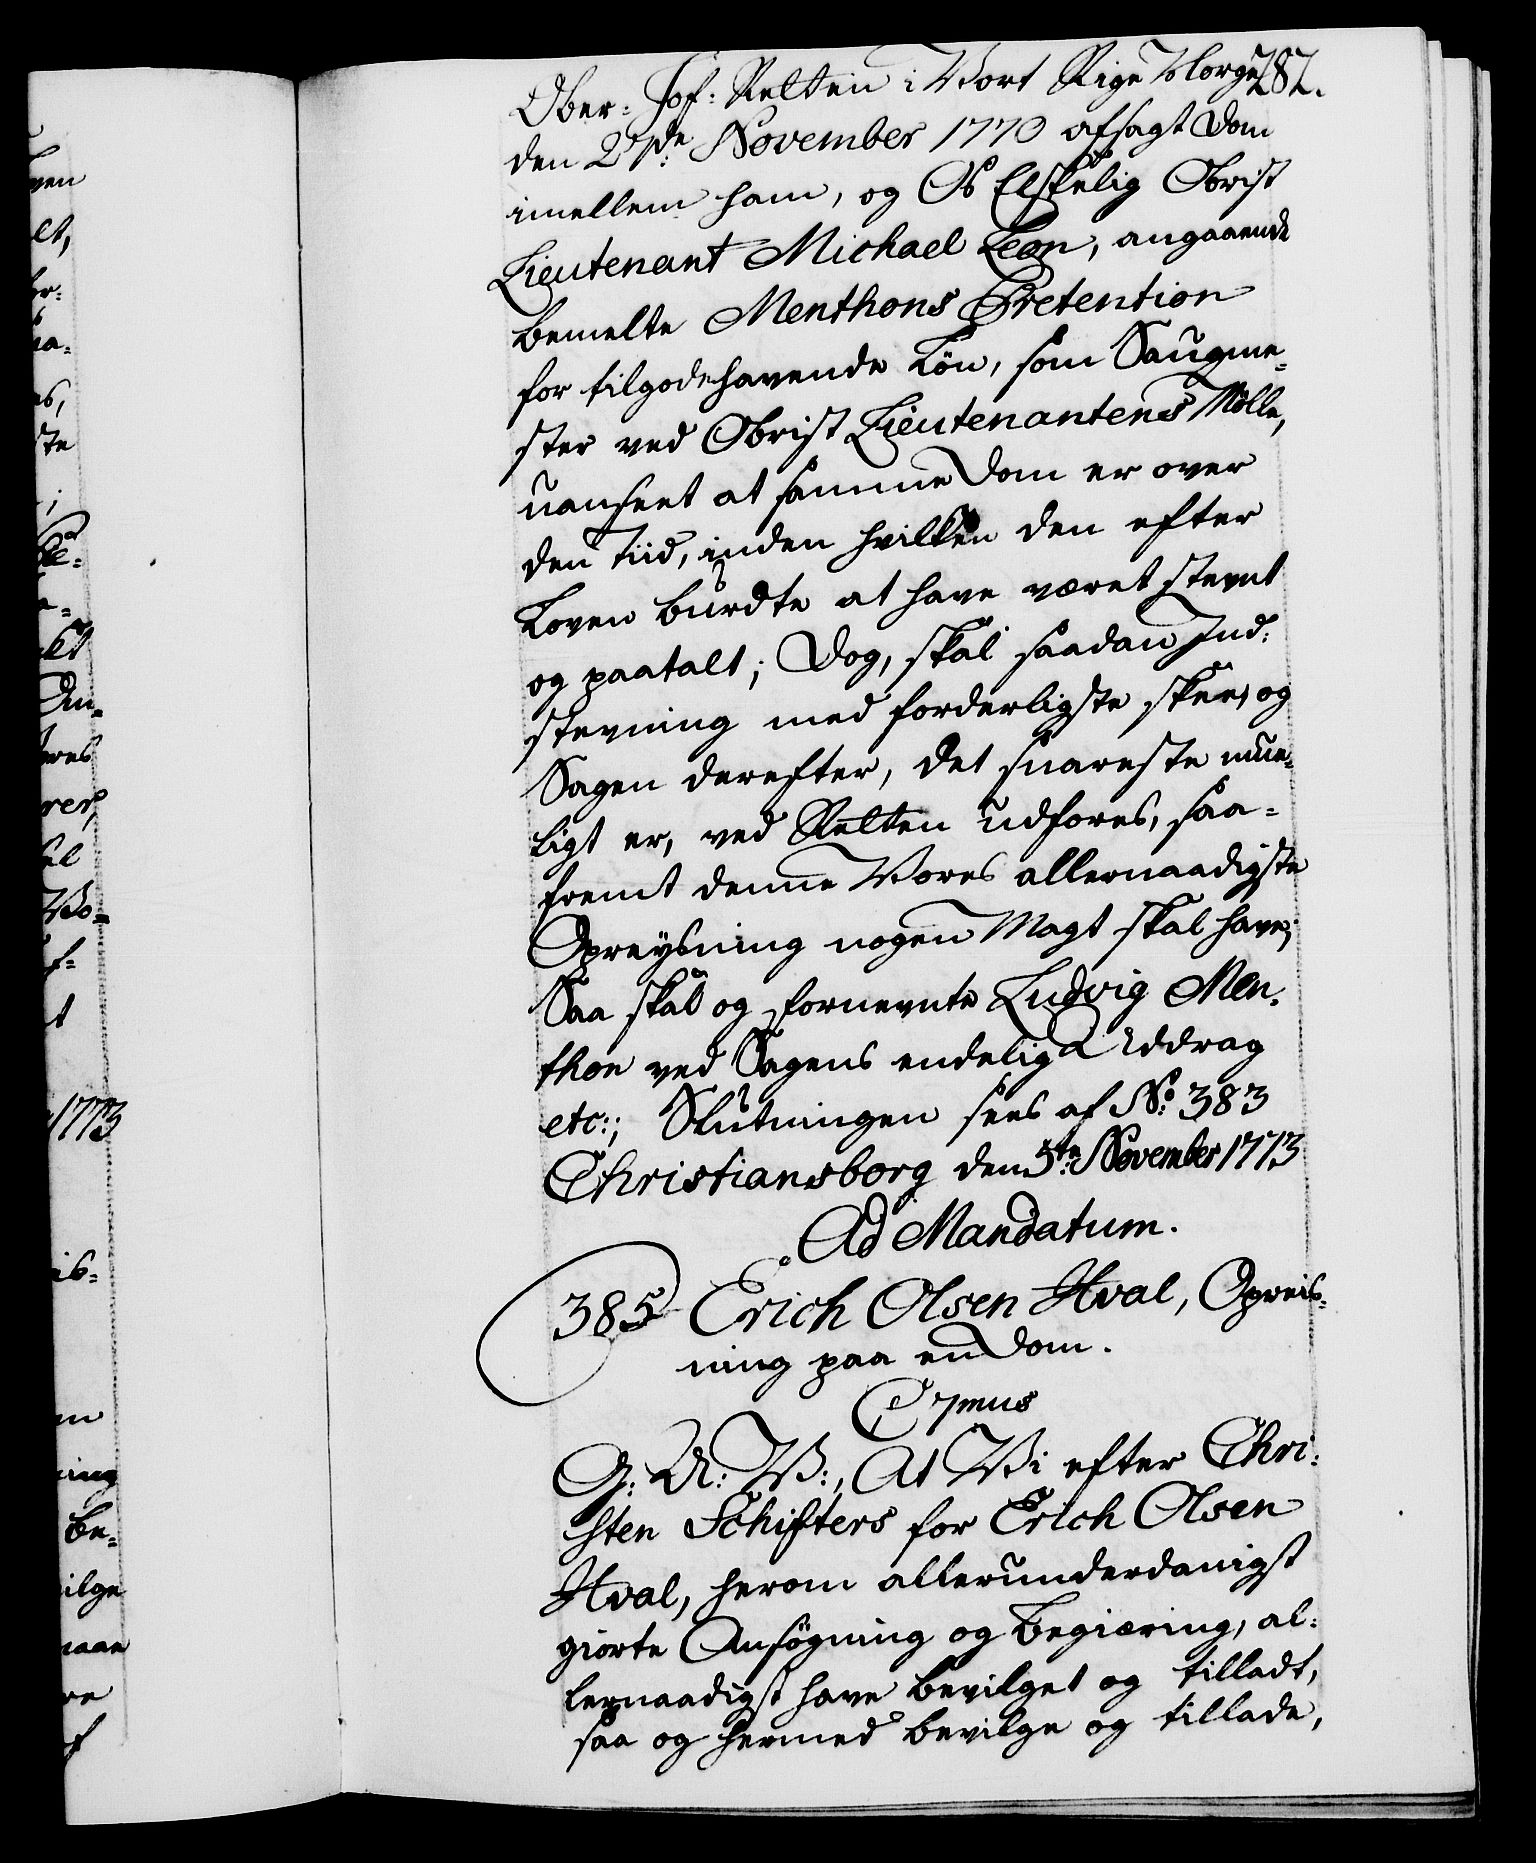 282.
Ober-Hof-Retten i Vort Rige Norge
den 27de November 1770 afsagt Dom
imellem ham, og Os Elskelig Obrist
Lieutenant Michael Leon, angaaende
bemelte Menthons Pretention
for tilgodehavende Løn, som Saugme-
ster ved Obrist Lieutenantens Mølle,
uanseet at samme Dom er over
den Tiid, inden hvilken den efter
Loven burdte at have været stevnt
og paatalt; Dog, skal saadan Ind-
stevning med forderligste skee, og
Sagen derefter, det snareste mue-
ligt er, ved Retten udføres, saa-
fremt denne Vores allernaadigste
Opreysning nogen Magt skal have;
Saa skal og fornevnte Ludvig Men-
thon ved Sagens endelig Uddrag
etc:; Slutningen sees af No: 383
Christiansborg den 5te November 1773
Ad Mandatum.
385 Erich Olsen Hval, Opreis-
ning paa en Dom.
C 7mus
G: A: V:, At Vi efter Chri-
sten Schifters for Erich Olsen
Hval, herom allerunderdanigst
giorte Ansøgning og Begiæring, al-
lernaadigst have bevilget og tilladt,
saa og hermed bevilge og tillade,
ven
let,
or:
aa-
es,
ste
a-
lt
Om-
eres
rer,
el
Vo-
f-
t
1773
is-
en
ning
be-
vilge
naae
re
f